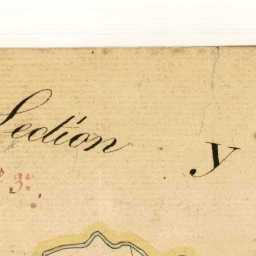 Section y
3: